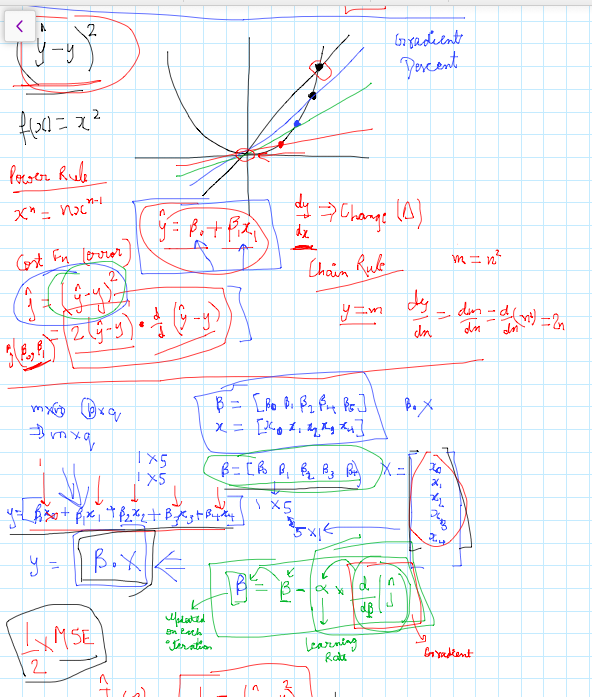 (ŷ-y)²
Gradient
Descent
f(x) = x²
Power Rule
xⁿ = nxⁿ⁻¹
ŷ = β₀ + β₁x₁
dy/dx ⇒ Change (Δ)
Cost Fn (error)
Chain Rule
m = n²
ŷ = (ŷ-y)²
y = m
dy/dn = dm/dn = d/dn(n²) = 2n
= 2(ŷ-y) · d/d (ŷ-y)
(β₀, β₁)
m×n p×q
⇒ m×q
β = [β₀ β₁ β₂ β₃ β₄]
x = [x₀ x₁ x₂ x₃ x₄]
β. X
1×5
1×5
β = [β₀ β₁ β₂ β₃ β₄]
X = [x₀
x₁
x₂
x₃
x₄]
y = [β₀x₀ + β₁x₁ + β₂x₂ + β₃x₃ + β₄x₄]
1×5
5×1
y = β.X
β = β - α × d/dβ (ŷ)
Updated
on each
iteration
Learning
Rate
Gradient
1/2 × MSE